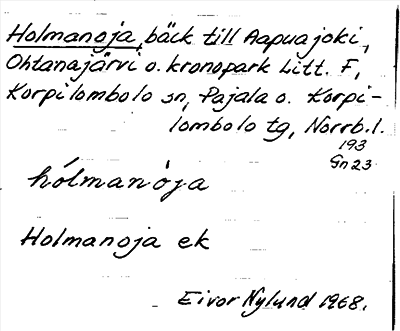 Holmanoja, bäck till Aapuajoki,
Ohtanajärvi o. kronopark Litt. F,
Korpilombolo sn, Pajala o. Korpi-
lombolo tg, Norrb.l.
193
Gn 23
hólmanòja
Holmanoja ek
Eivor Nylund 1968.